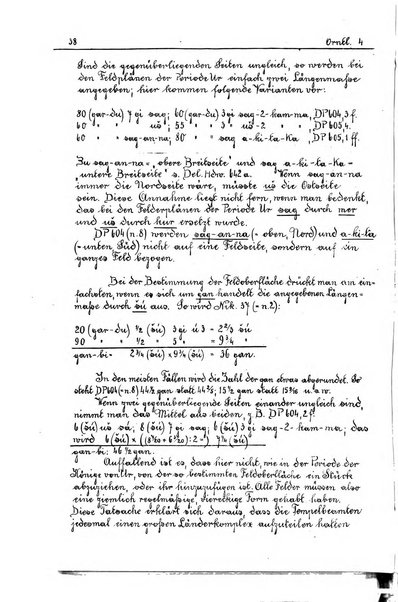 38 Ornêl. 4
Sind die gegenüberliegenden Seiten ungleich, so werden bei
den Feldplänen der Periode Ur einfach zwei Längenmaße
angegeben; hier kommen folgende Varianten vor:
80 (gar-du) 7 gi sag; 60 (gar-du) 3 gi sag-2-kam-ma, DP 604, 3 f.
60 " uš; 55 " 3 " uš-2- " DP 605, 4.
60 " sag-an-na; 80 " sag a-ki-la-ka, DP 605, 1 ff.
Zu sag-an-na „obere Breitseite" und sag a-ki-la-ka-
„untere Breitseite" s. Del. Hdw. 642 a. Wenn sag-an-na
immer die Nordseite wäre, müsste uš die Ostseite
sein. Diese Annahme liegt nicht fern, wenn man bedenkt,
das bei den Felderplänen der Periode Ur sag durch mer
und uš durch ersetzt wurde.
DP 604 (n. 8) werden sag-an-na (= oben, Nord) und a-ki-la
(= unten Süd) nicht auf eine Feldseite, sondern auf ein
ganzes Feld bezogen.
Bei der Bestimmung der Feldoberfläche drückt man am ein-
fachsten, wenn es sich um gan handelt die angegebenen Längen-
maße durch šú aus. So wird Nik. 37 (= n. 2):
20 (gar-du) ½ (šú) 3 gi ú 3 = 2⅔ šú
90 " ½ " 3 " = 9¾ "
gan-bi = 2⅔ (šú) × 9¾ (šú) = 36 gan.
In den meisten Fällen wird die Zahl der gan etwas abgerundet. So
steht DP 604 (= n. 8) 44½ gan statt 44⅜; 15½ gan statt 15 u. s. w.
Wenn zwei gegenüberliegenden Seiten einander ungleich sind,
nimmt man das Mittel aus beiden, z. B. DP 604, 2 f.
6 (šú) uš das
wird 6 (šú) × = 7¼ (šú)
gan-bi: 46½ gan.
Auffallend ist es, dass hier nicht, wie in der Periode der
Könige von Ur, von der so bestimmten Feldoberfläche ein Stück
abzuziehen, oder ihr hinzuzufügen ist. Alle Felder müssen also
eine ziemlich regelmäßige, viereckige Form gehabt haben.
Diese Tatsache erklärt sich daraus, dass die Tempelbeamten
jedesmal einen großen Länderkomplex aufzuteilen hatten